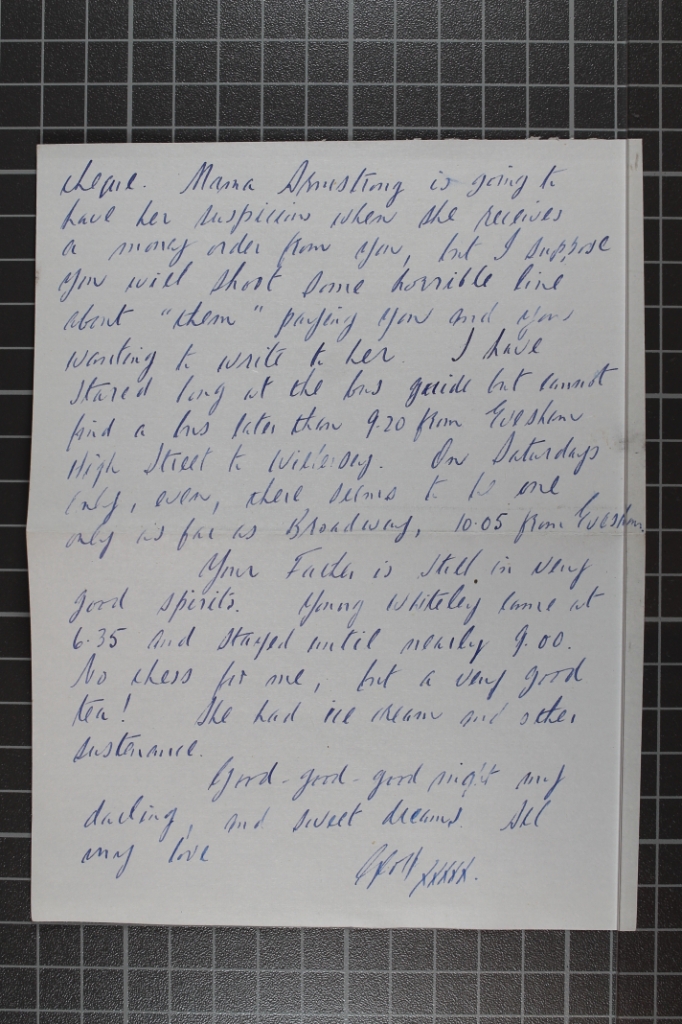 cheque. Mama Armstrong is going to
have her suspicions when she receives
a money order from you, but I suppose
you will shoot some horrible line
about "them" paying you and your
wanting to write to her. I have
stared long at the bus guide but cannot
find a bus later than 9.20 from Evesham
High Street to Willersey. On Saturdays
only, even, there seems to be one
only as far as Broadway, 10.05 from Evesham.
Your Father is still in very
good spirits. Young Whiteley came at
6.35 and stayed until nearly 9.00.
No chess for me, but a very good
tea! She had ice cream and other
sustenance.
Good-good-good night my
darling, and sweet dreams. All
my love
Geoff xxxxx.